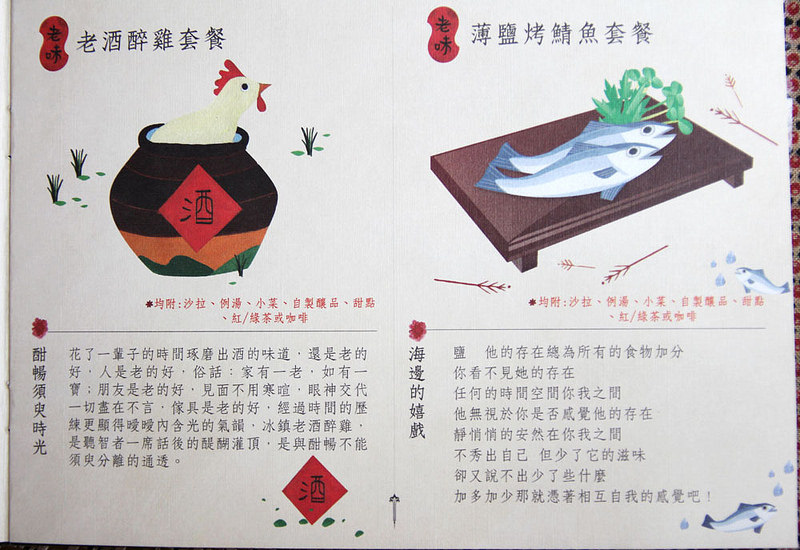 老味
老酒醉雞套餐
酒
✹均附:沙拉、例湯、小菜、自製釀品、甜點
、紅/綠茶或咖啡
酣暢須臾時光
花了一輩子的時間琢磨出酒的味道，還是老的
好，人是老的好，俗話：家有一老，如有一
寶；朋友是老的好，見面不用寒暄，眼神交代
一切盡在不言，傢具是老的好，經過時間的歷
練更顯得曖曖內含光的氣韻，冰鎮老酒醉雞，
是聽智者一席話後的醍醐灌頂，是與酣暢不能
須臾分離的通透。
酒
老味
薄鹽烤鯖魚套餐
✹均附:沙拉、例湯、小菜、自製釀品、甜點
、紅/綠茶或咖啡
海邊的嬉戲
鹽　他的存在總為所有的食物加分
你看不見她的存在
任何的時間空間你我之間
他無視於你是否感覺他的存在
靜悄悄的安然在你我之間
不秀出自己 但少了它的滋味
卻又說不出少了些什麼
加多加少那就憑著相互自我的感覺吧！